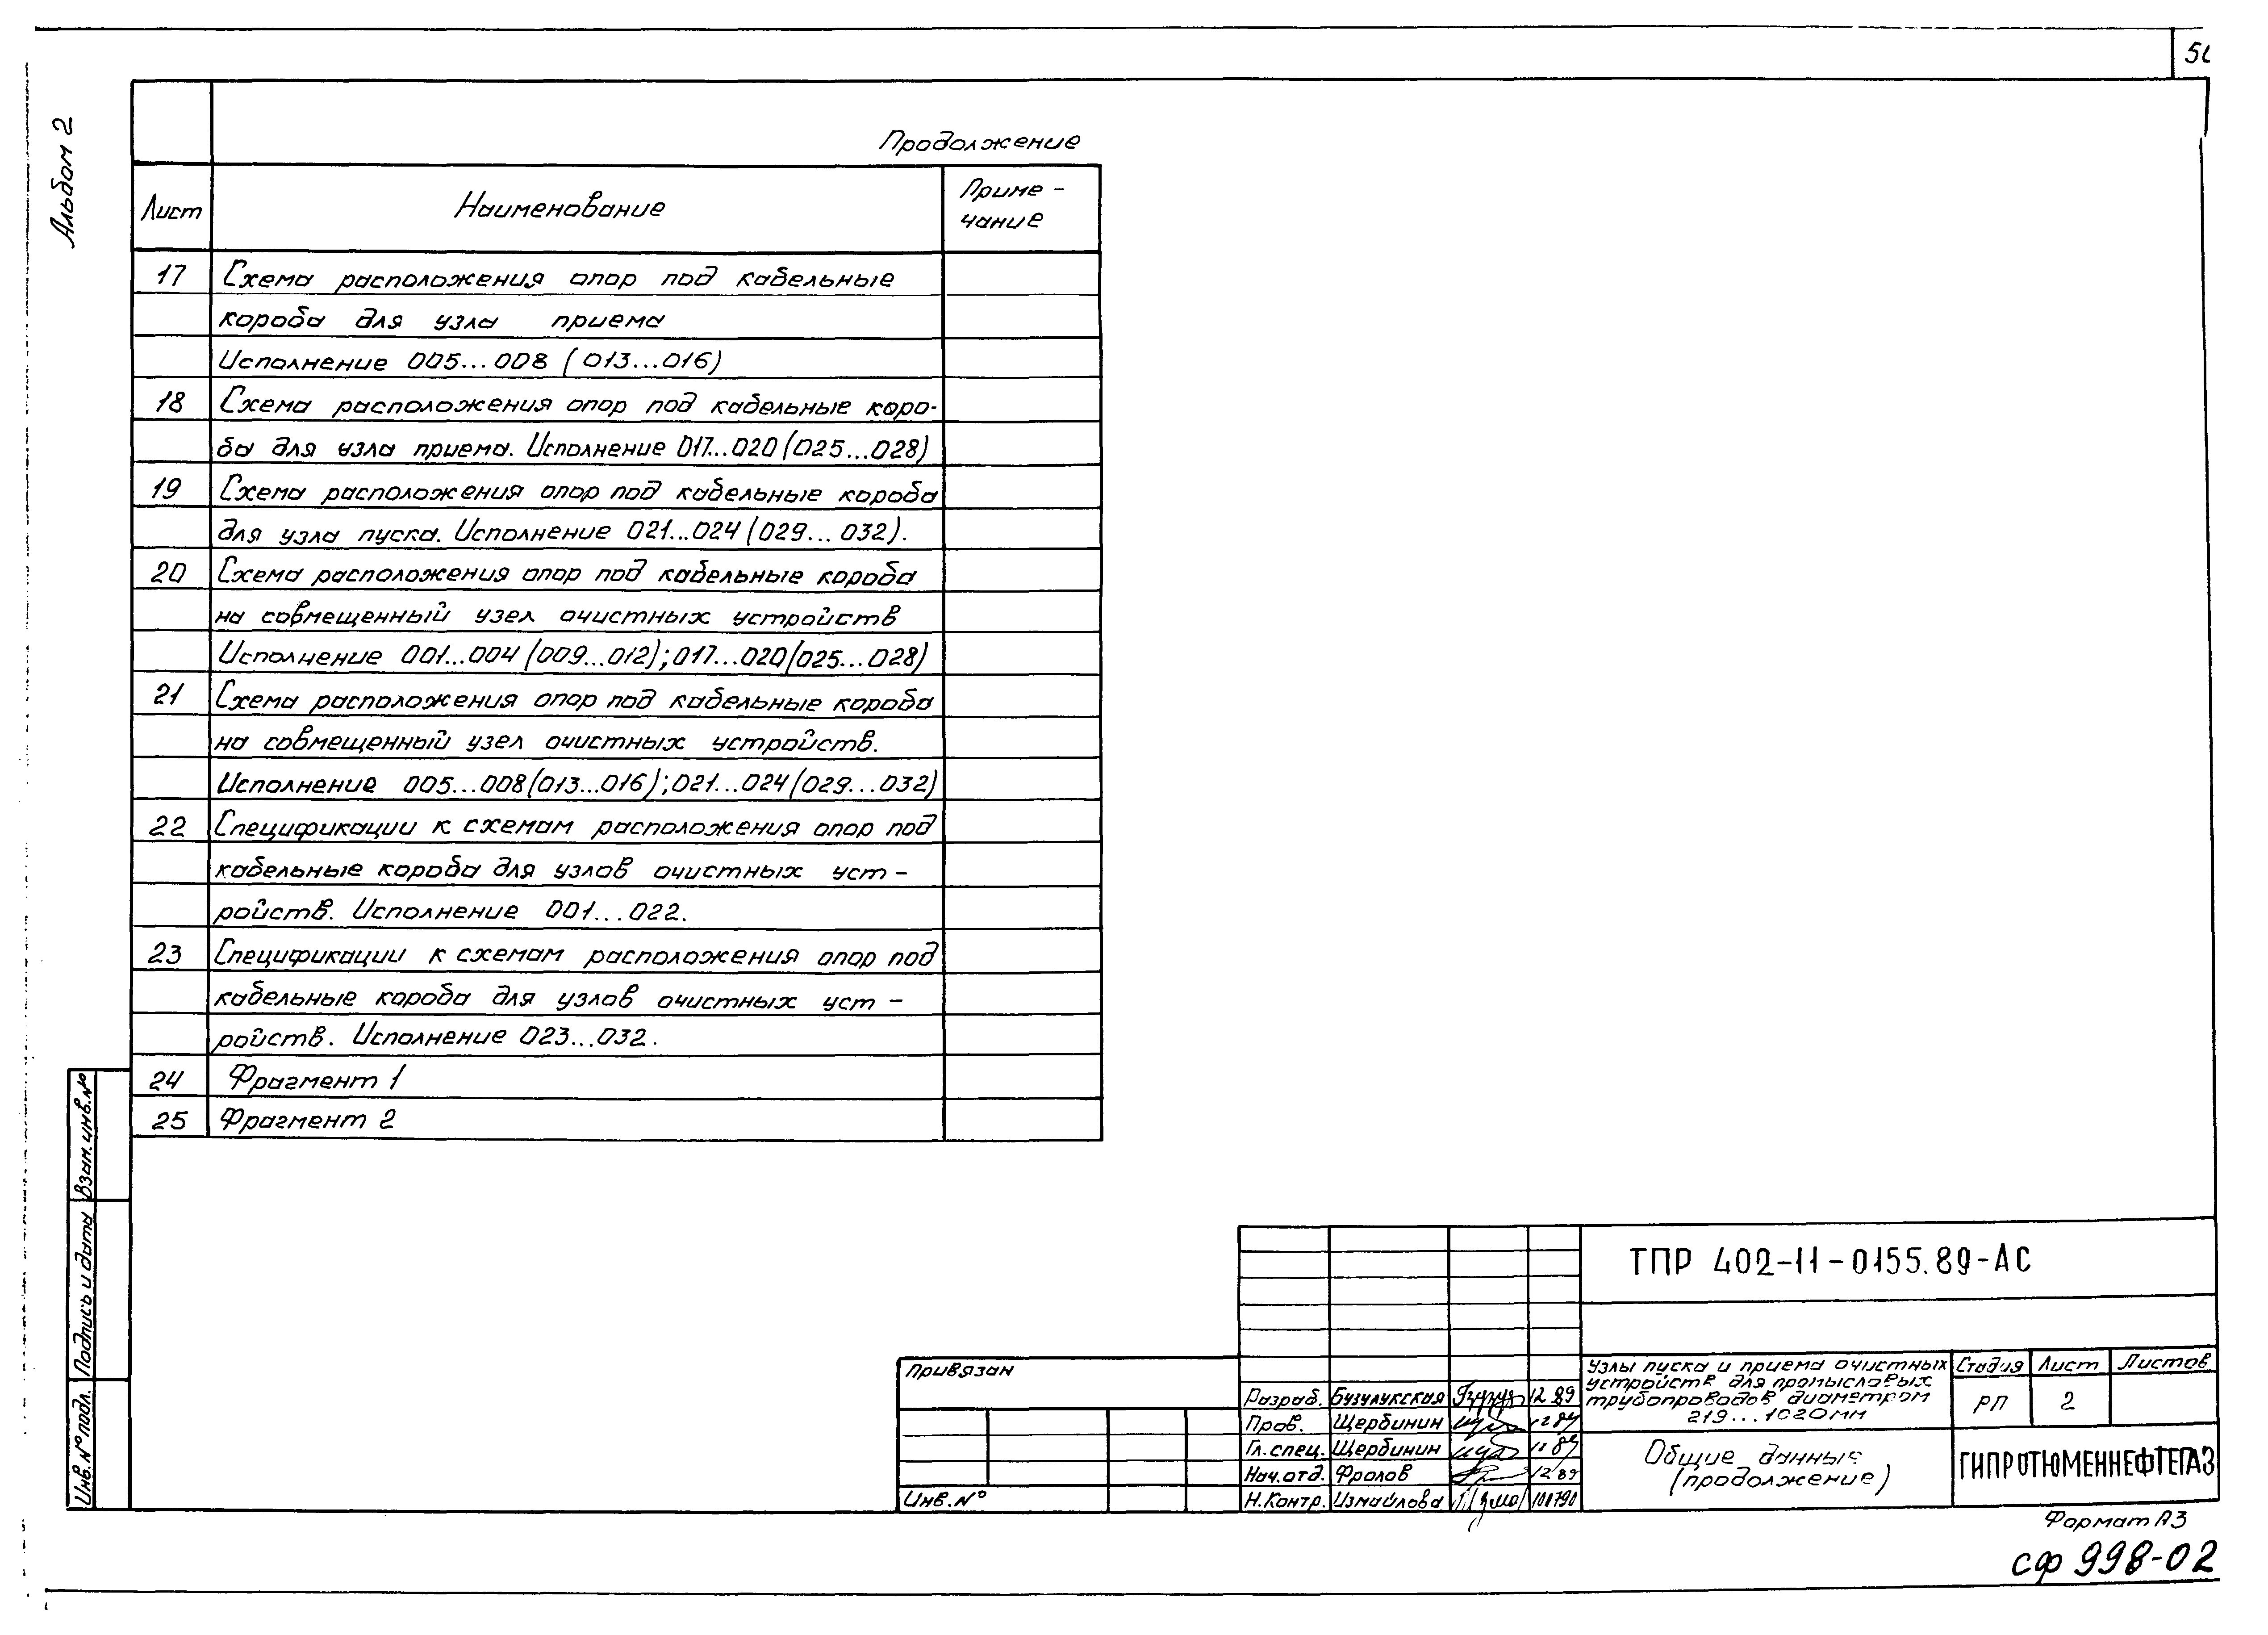 Альбом 2
Продолжение
Лист Наименование Приме-
чание
17 Схема расположения опор под кабельные
короба для узла приема
Исполнение 005...008 (013...016)
18 Схема расположения опор под кабельные коро-
ба для узла приема. Исполнение 017...020 (025...028)
19 Схема расположения опор под кабельные короба
для узла пуска. Исполнение 021...024 (029...032).
20 Схема расположения опор под кабельные короба
на совмещенный узел очистных устройств
Исполнение 001...004 (009...012); 017...020 (025...028)
21 Схема расположения опор под кабельные короба
на совмещенный узел очистных устройств.
Исполнение 005...008 (013...016); 021...024 (029...032)
22 Спецификации к схемам расположения опор под
кабельные короба для узлов очистных уст-
ройств. Исполнение 001...022.
23 Спецификации к схемам расположения опор под
кабельные короба для узлов очистных уст-
ройств. Исполнение 023...032.
24 Фрагмент 1
25 Фрагмент 2
Взам. инв. №
Подпись и дата
Инв. № подл.
Привязан
Инв. №
Разраб. Бузулукская 12 89
Пров. Щербинин 12 89
Гл. спец. Щербинин 11 89
Нач. отд. Фролов 12 89
Н. Контр. Измайлова
ТПР 402-11-0155.89-АС
Узлы пуска и приема очистных
устройств для промысловых
трубопроводов диаметром
219...1020 мм
Стадия Лист Листов
РП 2
Общие данные
(продолжение)
ГИПРОТЮМЕННЕФТЕГАЗ
Формат А3
СФ 998-02